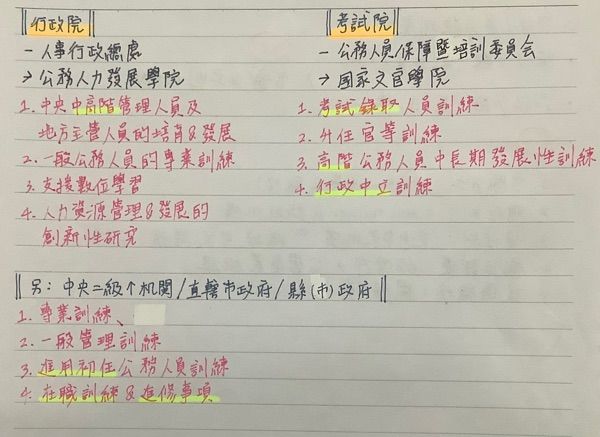 行政院
－人事行政總處
→公務人力發展學院
1. 中央中高階管理人員及
地方主管人員的培育&發展
2. 一般公務人員的專業訓練
3. 支援數位學習
4. 人力資源管理&發展的
創新性研究
考試院
－公務人員保障暨培訓委員会
→國家文官學院
1. 考試錄取人員訓練
2. 升任官等訓練
3. 高階公務人員中長期發展性訓練
4. 行政中立訓練
另：中央二級个机関/直轄市政府/縣(市)政府
1. 專業訓練、
2. 一般管理訓練
3. 進用初任公務人員訓練
4. 在職訓練&進修事項